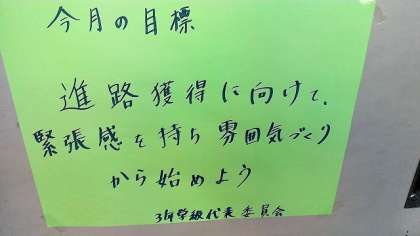 今月の目標
進路獲得に向けて、
緊張感を持ち雰囲気づくり
から始めよう
3年学級代表委員会